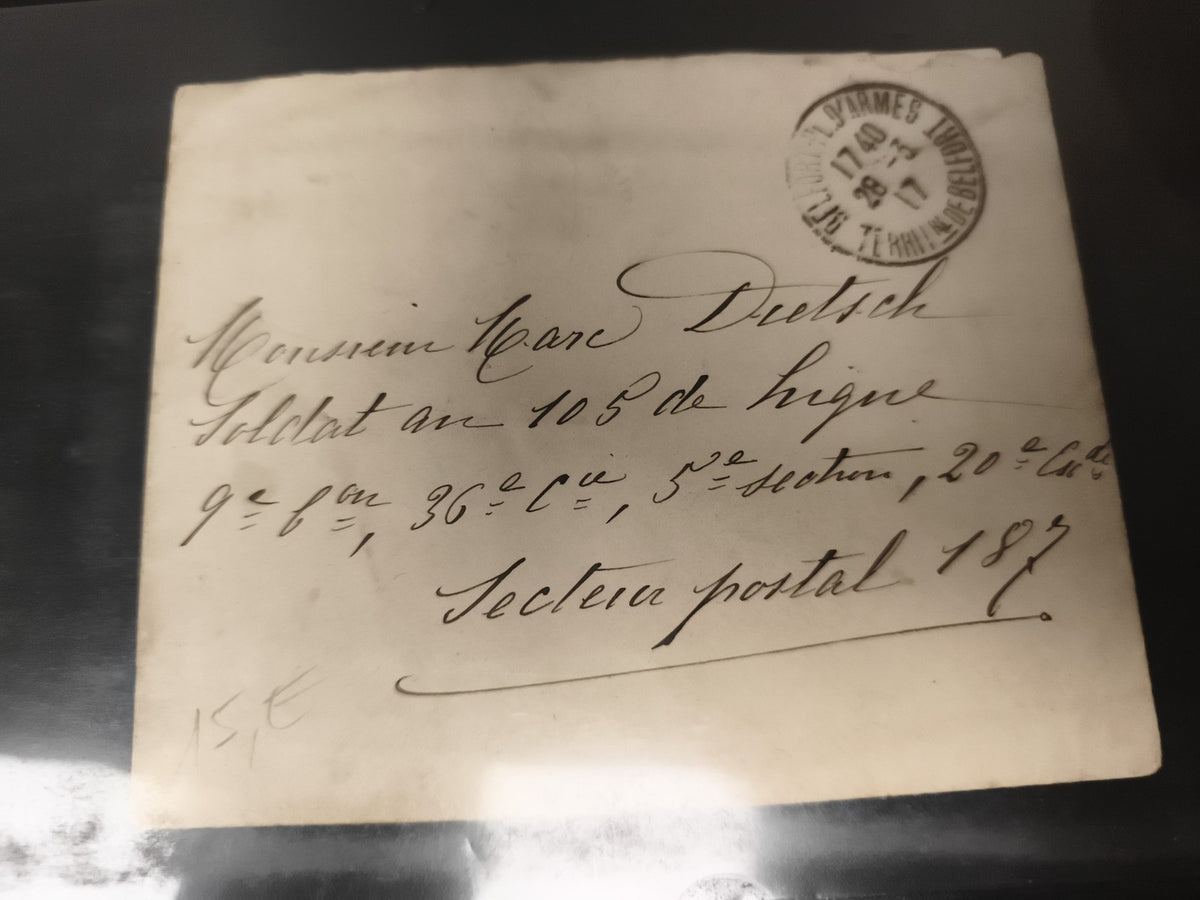 BELFORT PL. D'ARMES TERRIRE DE BELFORT
17 40
28 -3
17
Monsieur Marc Dietsch
Soldat au 105 de ligne
9e bon, 36e Cie, 5e section, 20e Escde
Secteur postal 187
15,€